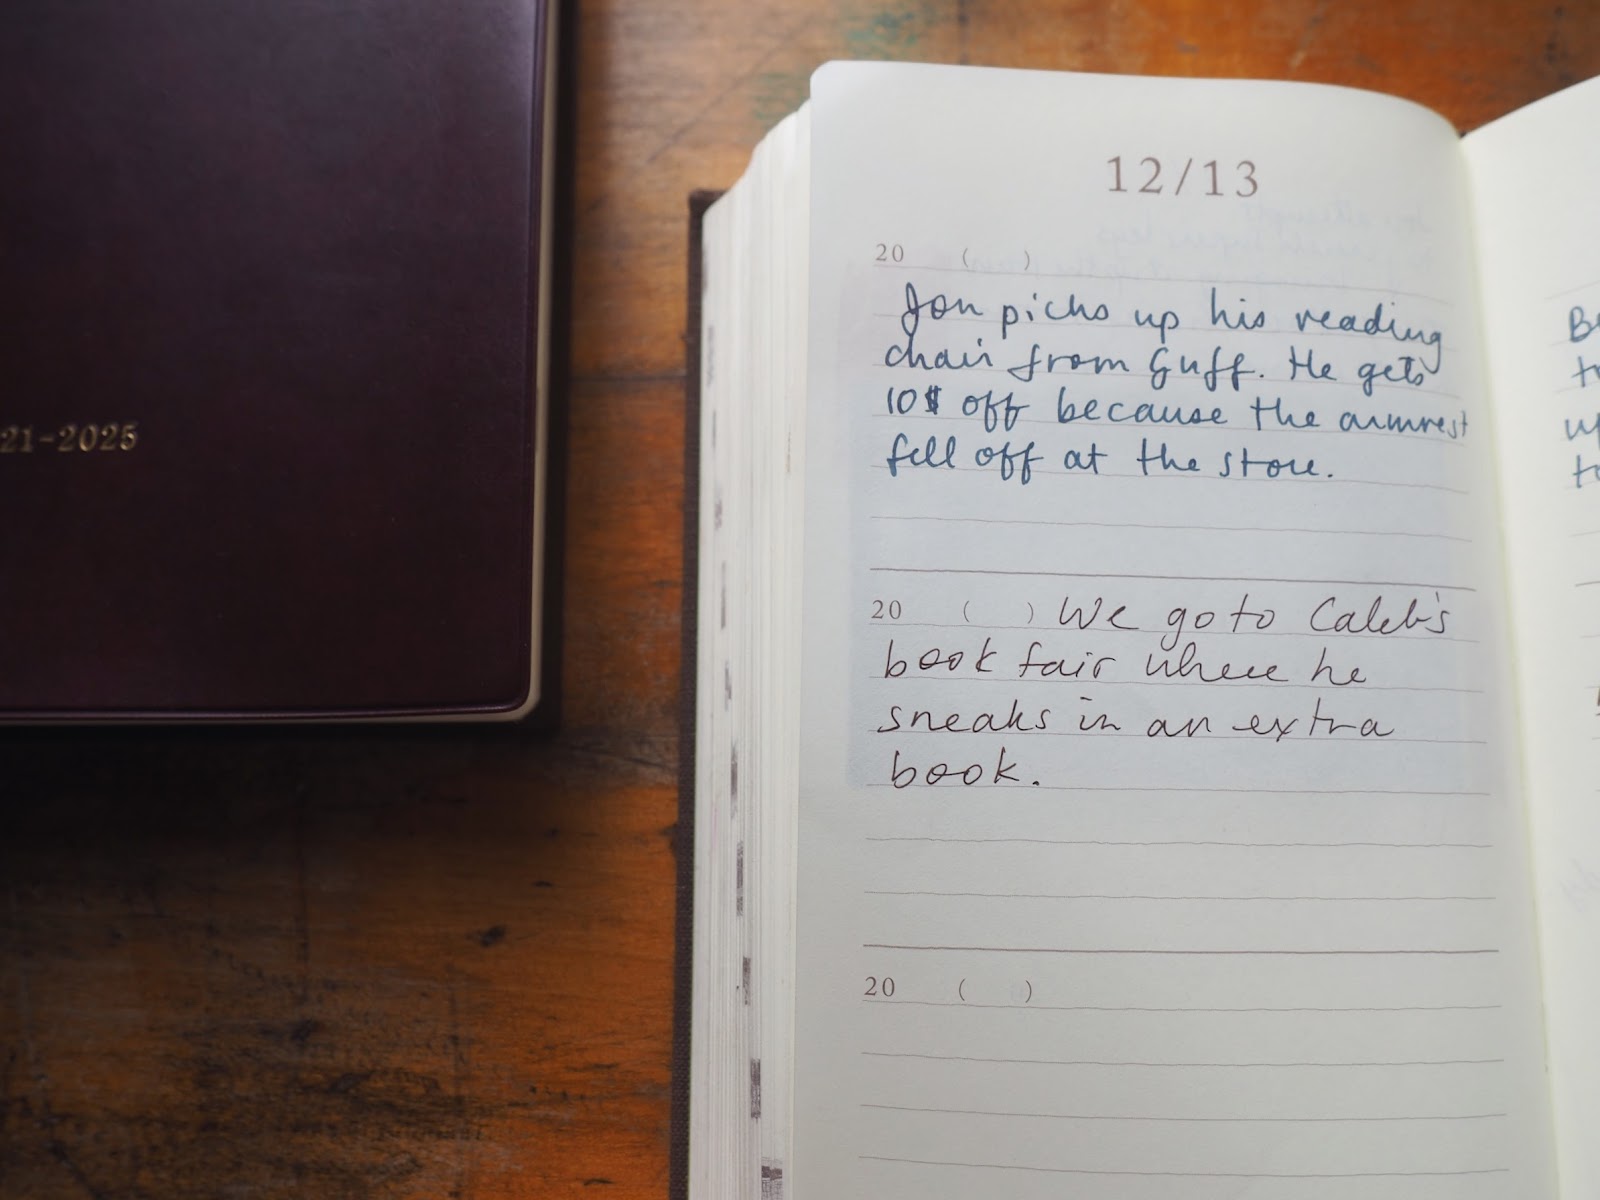 21-2025
12/13
20 ( )
Jon picks up his reading
chair from Guff. He gets
10$ off because the armrest
fell off at the store.
20 ( ) We go to Caleb's
book fair where he
sneaks in an extra
book.
20 ( )